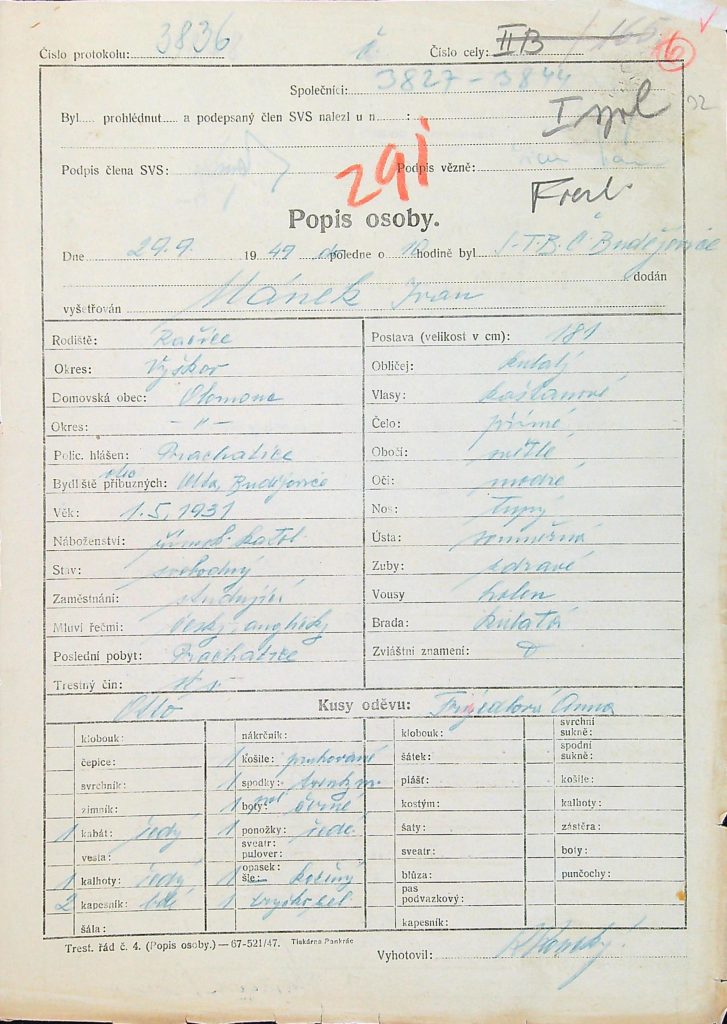 Číslo protokolu: 3836 Číslo cely: II B 165 6
Společníci: 3827-3844
Byl..... prohlédnut a podepsaný člen SVS nalezl u n :
Podpis člena SVS: Podpis vězně:
291
Popis osoby.
Dne 29.9. 1949 do poledne o 10 hodině byl S.T.B. Č. Budějovice
dodán
vyšetřován Mánek Ivan
Rodiště: Račice
Okres: Vyškov
Domovská obec: Olomouc
Okres: - " -
Polic. hlášen: Prachatice
Bydliště příbuzných: otec Otto, Budějovice
Věk: 1.5.1931
Náboženství: římsk. katol.
Stav: svobodný
Zaměstnání: studující
Mluví řečmi: český, anglicky
Poslední pobyt: Prachatice
Trestný čin:
Postava (velikost v cm): 181
Obličej: kulatý
Vlasy: kaštanové
Čelo: přímé
Obočí: světlé
Oči: modré
Nos: tupý
Ústa: souměrná
Zuby: zdravé
Vousy holen
Brada: kulatá
Zvláštní znamení:
Otto Kusy oděvu: Anna
klobouk:
čepice:
svrchník:
zimník:
1 kabát: šedý
vesta:
1 kalhoty: šedý
2 kapesník: bílé
šála:
nákrčník:
1 košile: pruhované
1 spodky:
1 boty: černé
1 ponožky: šedé
sveatr:
pulover:
1 opasek
šle: kožený
1
klobouk:
šátek:
plášť:
kostým:
šaty:
sveatr:
blůza:
pas
podvazkový:
kapesník:
svrchní
sukně:
spodní
sukně:
košile:
kalhoty:
zástěra:
boty:
punčochy:
Trest. řád č. 4. (Popis osoby.) — 67-521/47. Tiskárna Pankrác
Vyhotovil: